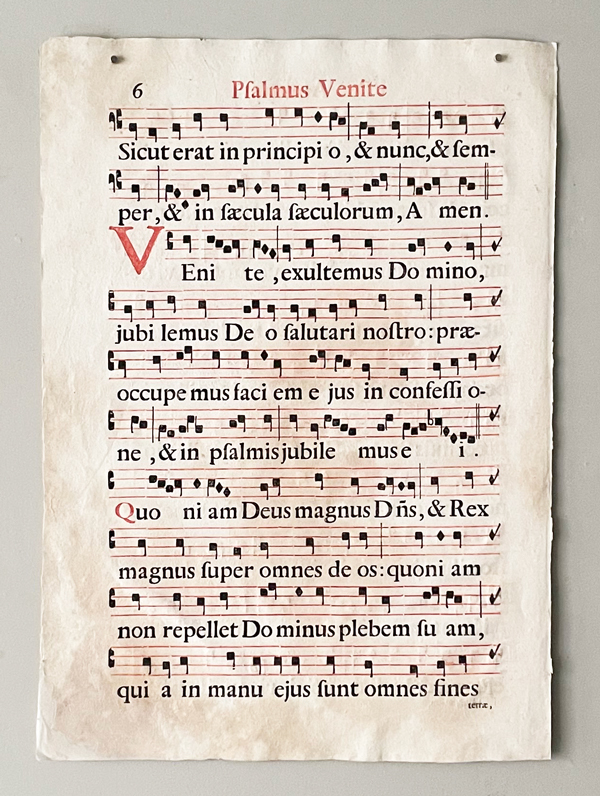 6 Pſalmus Venite
Sicut erat in principi o , & nunc, & ſem-
per , & in ſæcula ſæculorum , A men.
VEni te , exultemus Do mino,
jubi lemus De o ſalutari noſtro: præ-
occupe mus faci em e jus in confeſſi o-
ne , & in pſalmis jubile mus e i .
Quo ni am Deus magnus Dñs, & Rex
magnus ſuper omnes de os: quoni am
non repellet Do minus plebem ſu am,
qui a in manu ejus ſunt omnes fines
terræ,